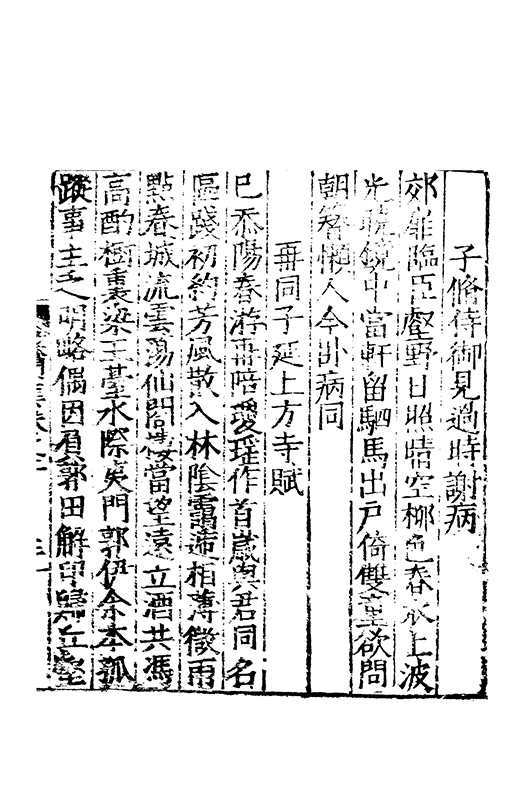 子脩待御見過時謝病
郊扉臨臣壑野日照晴空柳色春衣上波
光曉鏡中當軒留駟馬出戶倚雙童欲問
朝簪懶人今卧病同
再同子延上方寺賦
已忝陽春游再陪瓊瑤作首歲與君同名
區踐初約芳風散入林陰靄遞相薄微雨
點春城流雲蕩仙閣憑當望遠立酒共馮
高酌樹裏梁王臺水際夷門郭伊余本孤
蹤事主乏明略偶因負郭田解印歸丘壑